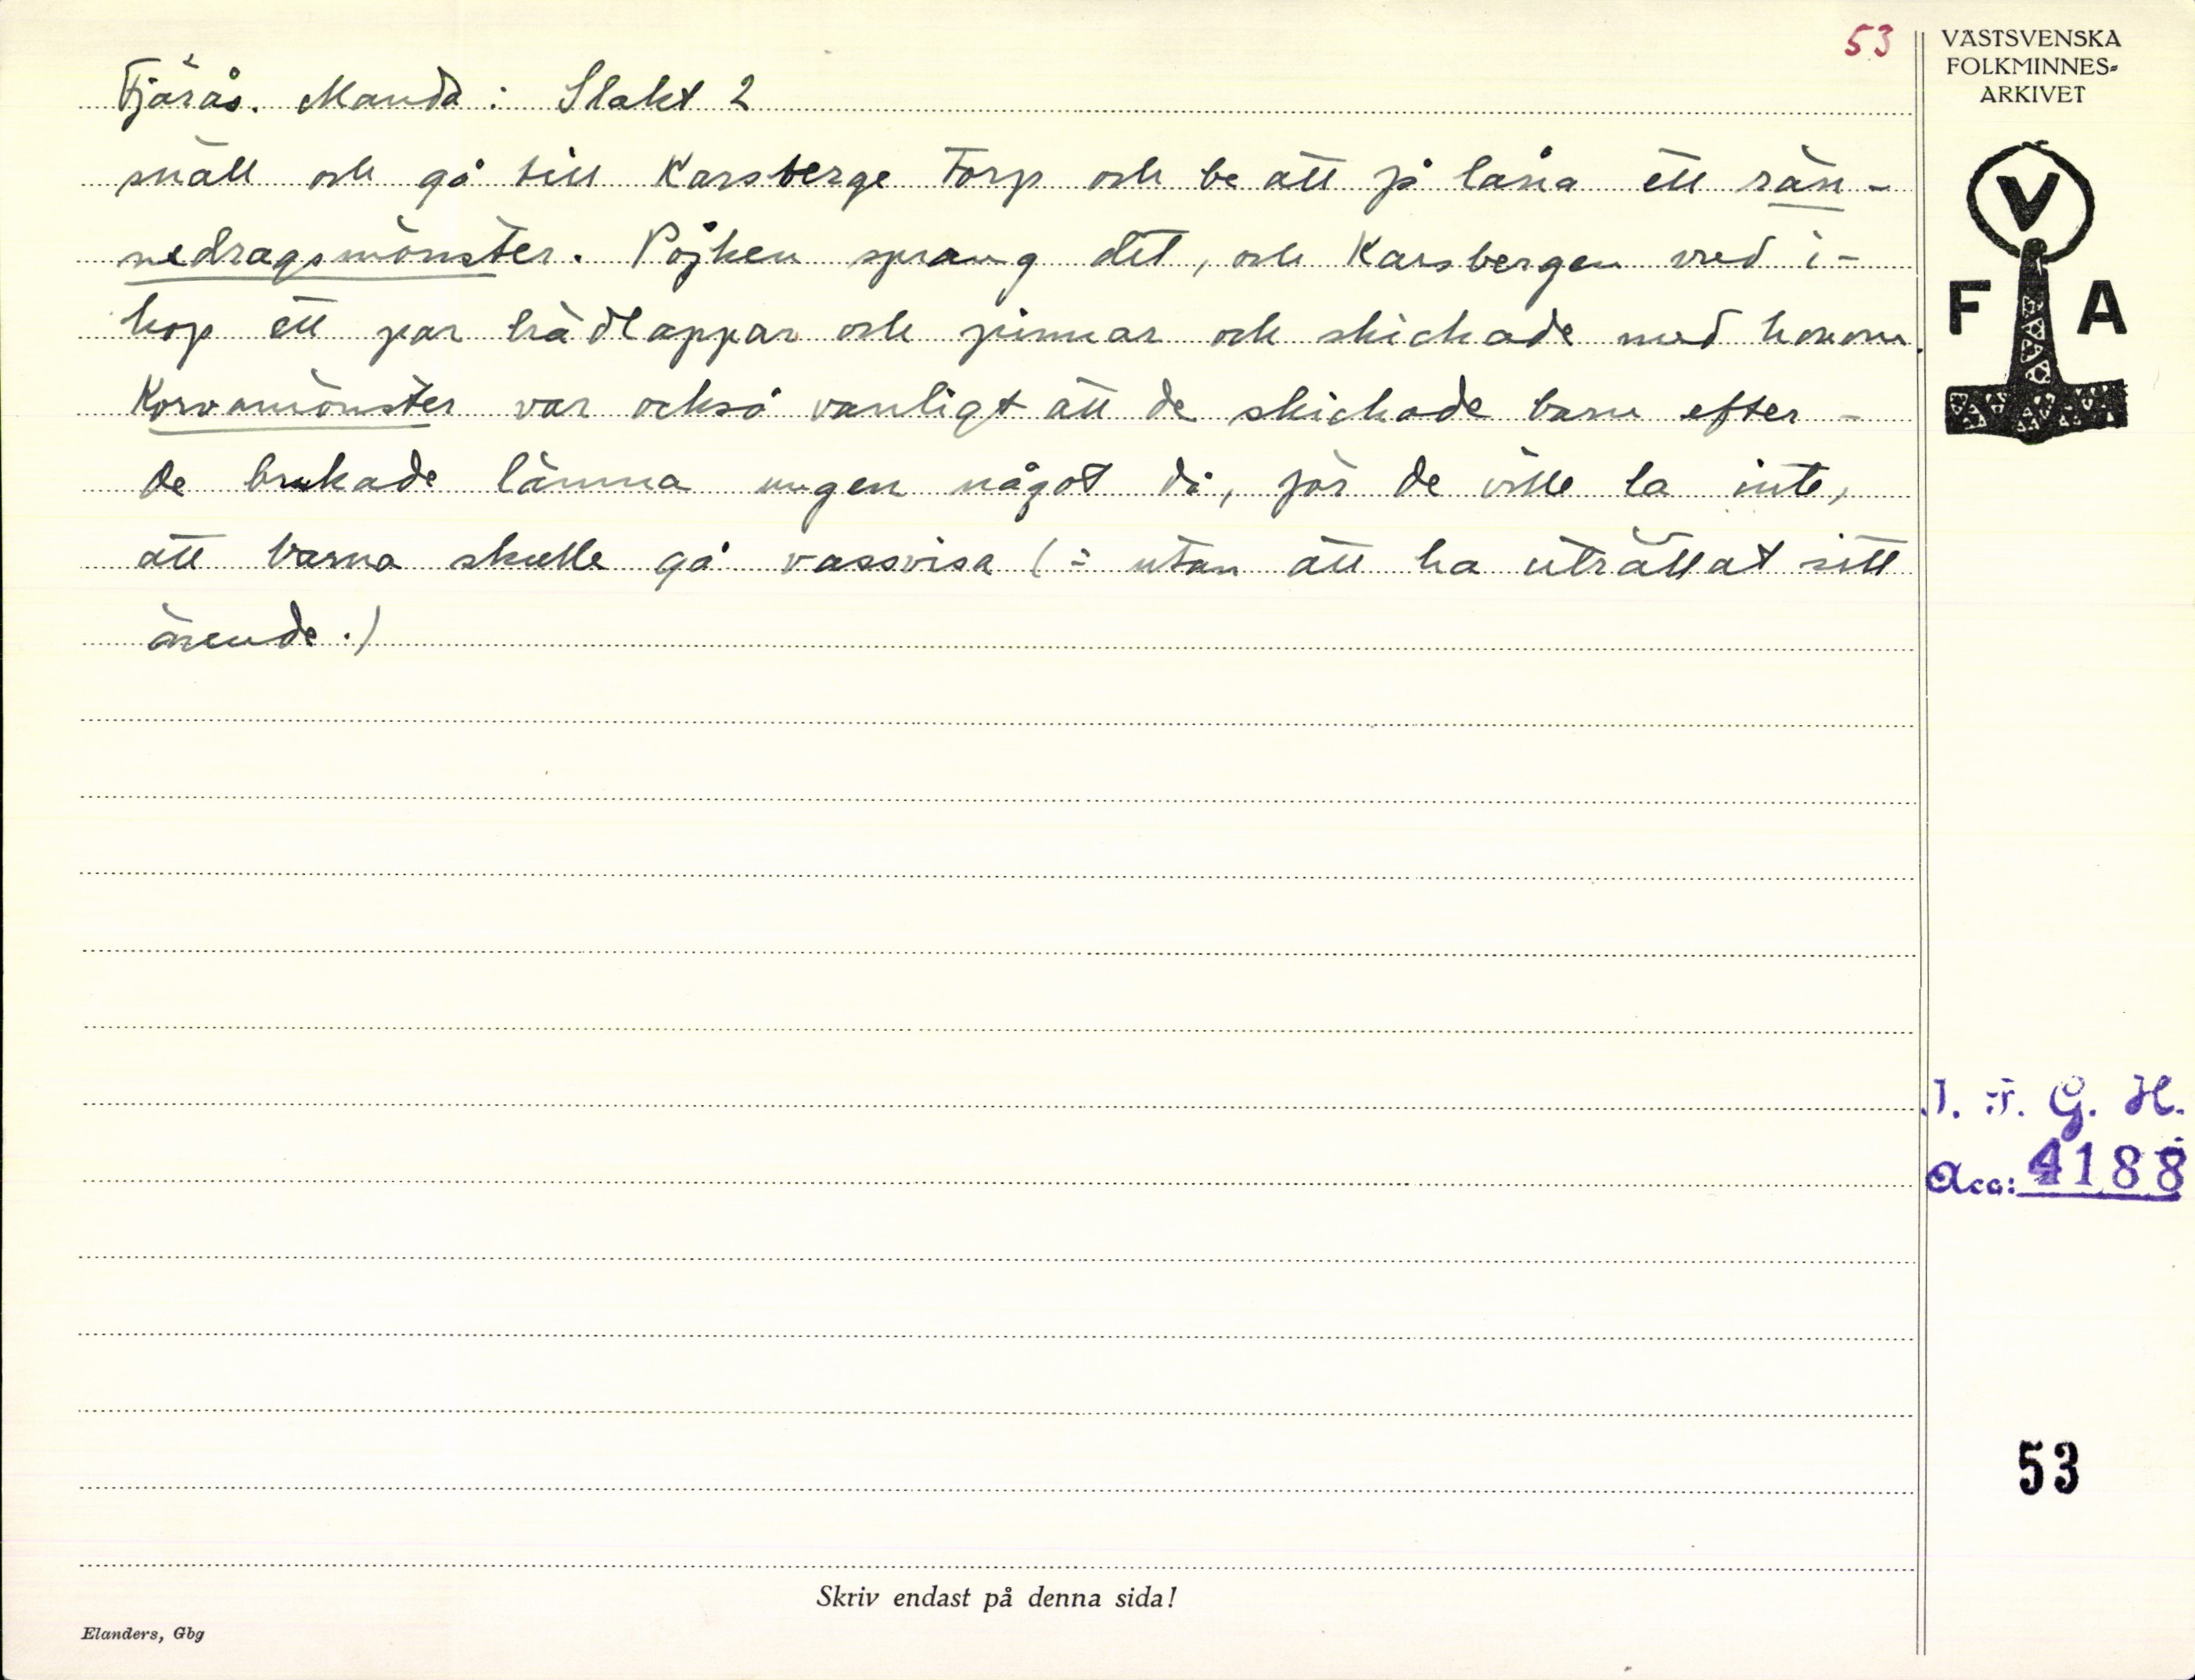 53
VÄSTSVENSKA
FOLKMINNES-
ARKIVET
Fjärås. Manda: Slakt 2
snäll och gå till Karsberge Torp och be att få låna ett rän-
nedragsmönster. Pojken sprang dit, och Karsbergen vred i-
hop ett par trådlappar och pinnar och skickade med honom.
Korvamönster var också vanligt att de skickade barn efter -
de brukade lämna ungen något då, för de ville la inte,
att barna skulle gå vassvisa (= utan att ha uträttat sitt
ärende.)
V
F A
I. F. G. H.
Acc: 4188
53
Skriv endast på denna sida!
Elanders, Gbg